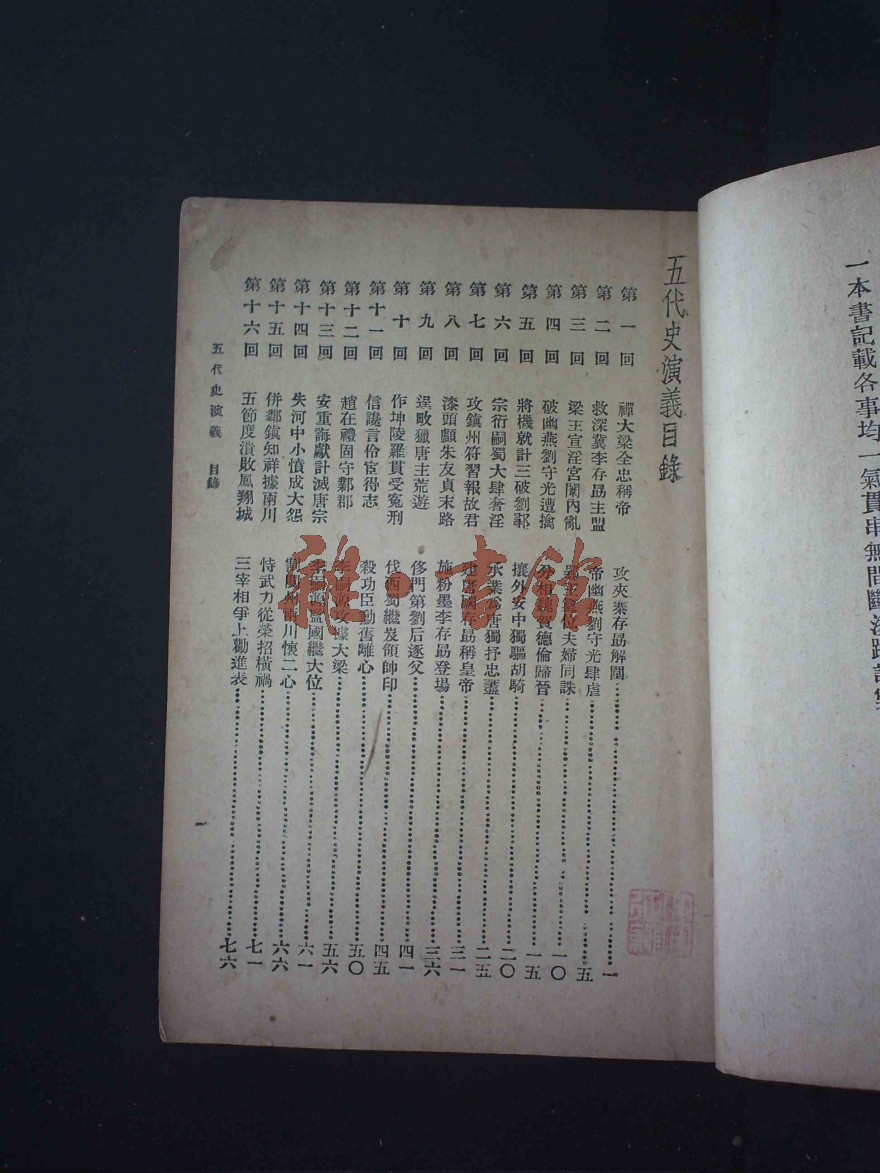 一本書記載各事均一氣貫串無間斷
五代史演義目錄
第一回 禪大梁全忠稱帝 攻夾寨存勗解圍 一
第二回 救深冀李存勗主盟 帝幽燕劉守光肆虐 五
第三回 梁王宣淫宮闈內亂 位夫婦同誅 一〇
第四回 破幽燕劉守光遭擒 德倫歸晉 一五
第五回 將機就計三破劉鄩 攘外安中獨驅胡騎 二〇
第六回 宗衍嗣蜀大肆奢淫 承業 唐獨抒忠藎 二五
第七回 攻鎮州符習報故君 存勗稱皇帝 三一
第八回 漆頭顱朱友貞末路 施粉墨李存勗登場 三六
第九回 逞畋獵唐主荒遊 侈門第劉后逐父 四一
第十回 作坤陵羅貫受冤刑 伐西蜀繼岌領帥印 四五
第十一回 信讒言伶宦得志 殺功臣動舊離心 五〇
第十二回 趙在禮固守鄴郡 李嗣源攻據大梁 五六
第十三回 安重誨獻計滅唐宗 李嗣源監國繼大位 六一
第十四回 失河中小憤成大怨 川懷二心 六六
第十五回 併鄰鎮知祥據兩川 恃武力從榮招橫禍 七一
第十六回 五節度潰敗鳳翔城 三宰相爭上勸進表 七六
五代史演義 目錄
一
雅·書館